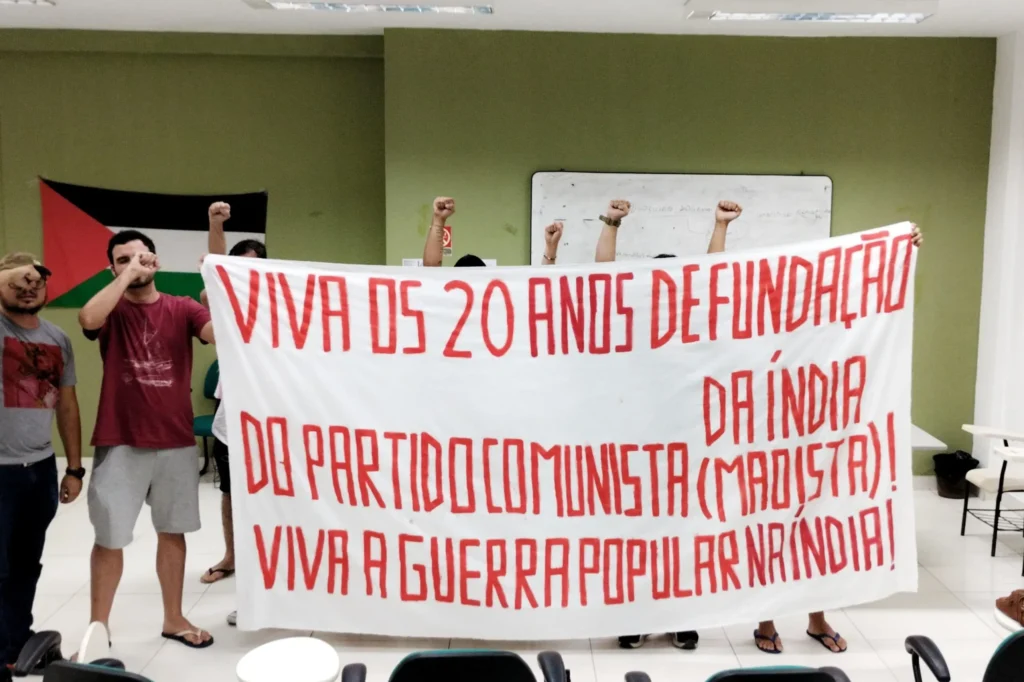 VIVA OS 20 ANOS DE FUNDAÇÃO
DA ÍNDIA
DO PARTIDO COMUNISTA (MAOISTA)!
VIVA A GUERRA POPULAR NA ÍNDIA!